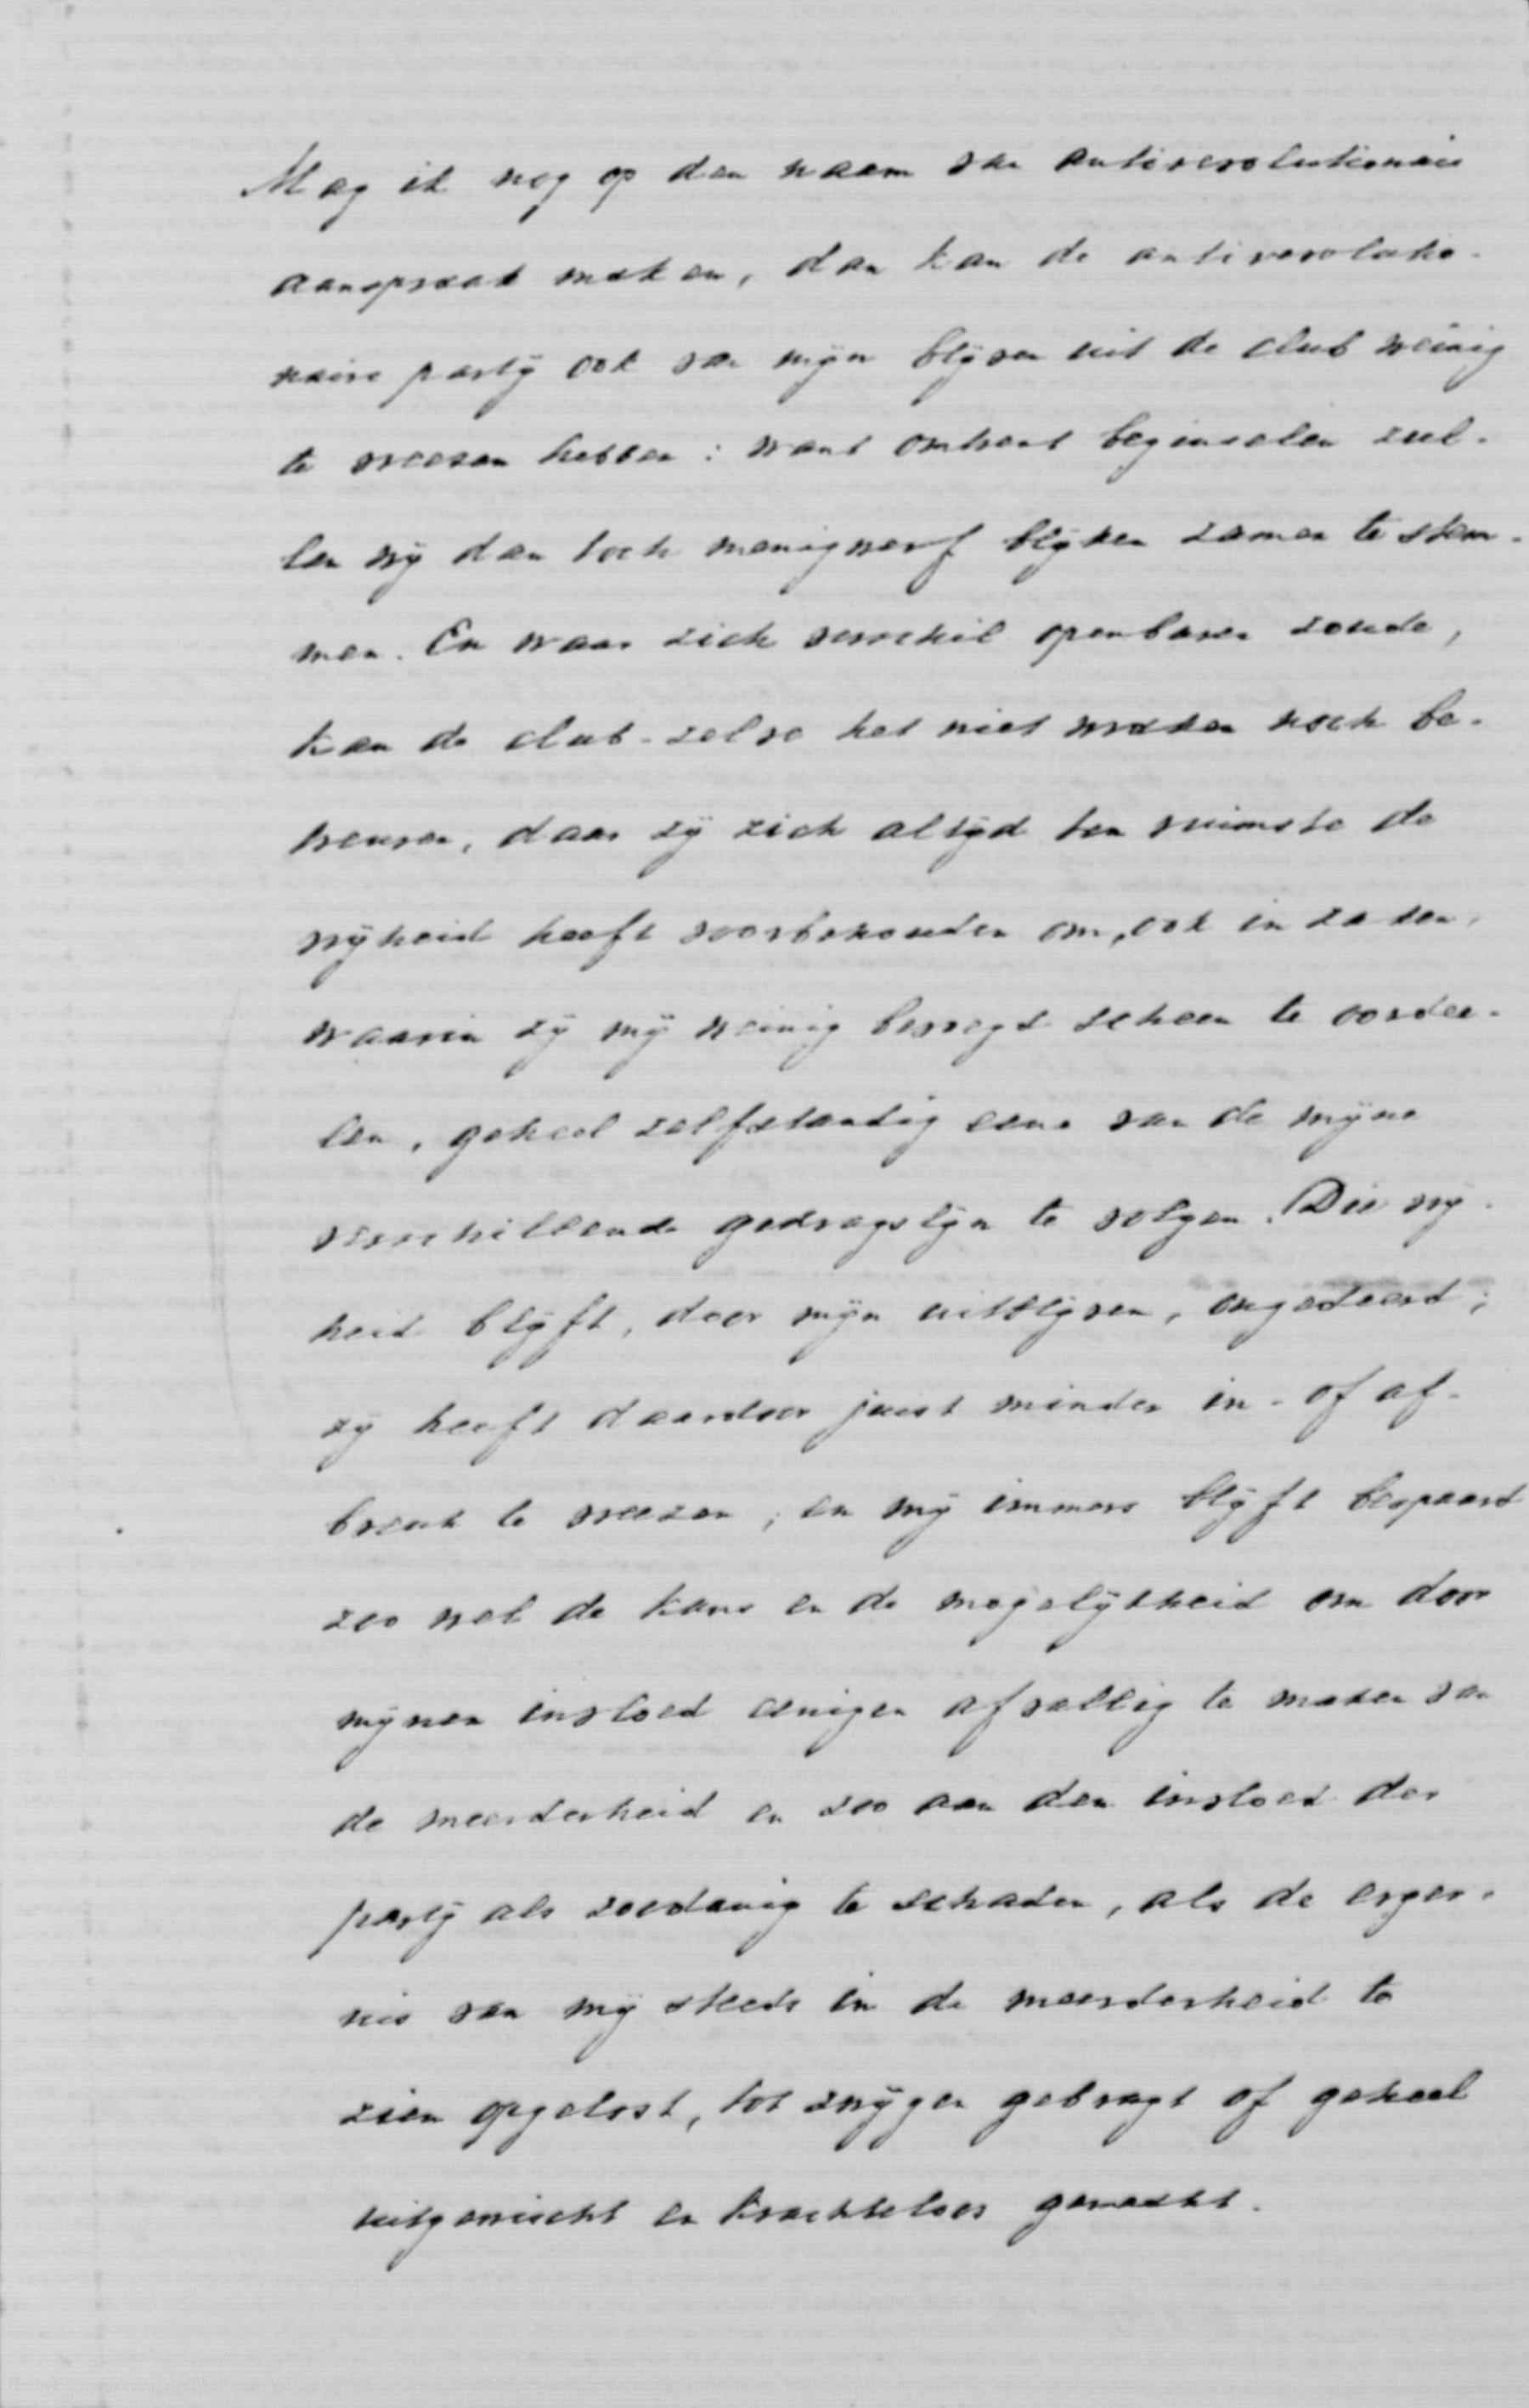 Mag ik nog op den naam van antirevolutionair
aanspraak maken, dan kan de antirevolutio-
naire party ook van mijn blijven uit de club weinig
te vreezen hebben: want omtrent beginselen zul-
len wij dan toch menigwerf blijken zamen te stem-
men. En waar zich verschil openbaren zoude,
kan de club-zelve het niet wraken noch be-
treuren, daar zij zich altijd ten ruimste de
vrijheid heeft voorbehouden om, ook in zaken,
waarin zij mij weinig bevoegd scheen te oordee-
len, geheel zelfstandig eene van de mijne
verschillende gedragslijn te volgen. Die vrij-
heid blijft, door mijn uitblijven, ongedeerd;
zij heeft daardoor juist minder in- of af-
breuk te vreezen; en mij immers blijft bespaard
zoo wel de kans en de mogelijkheid om door
mijnen invloed eenigen afvallig te maken van
de meerderheid en zoo aan den invloed der
partij als zoodanig te schaden, als de erger-
nis van mij steeds in de meerderheid te
zien opgelost, tot zwijgen gebragt of geheel
uitgewischt en krachteloos gemaakt.